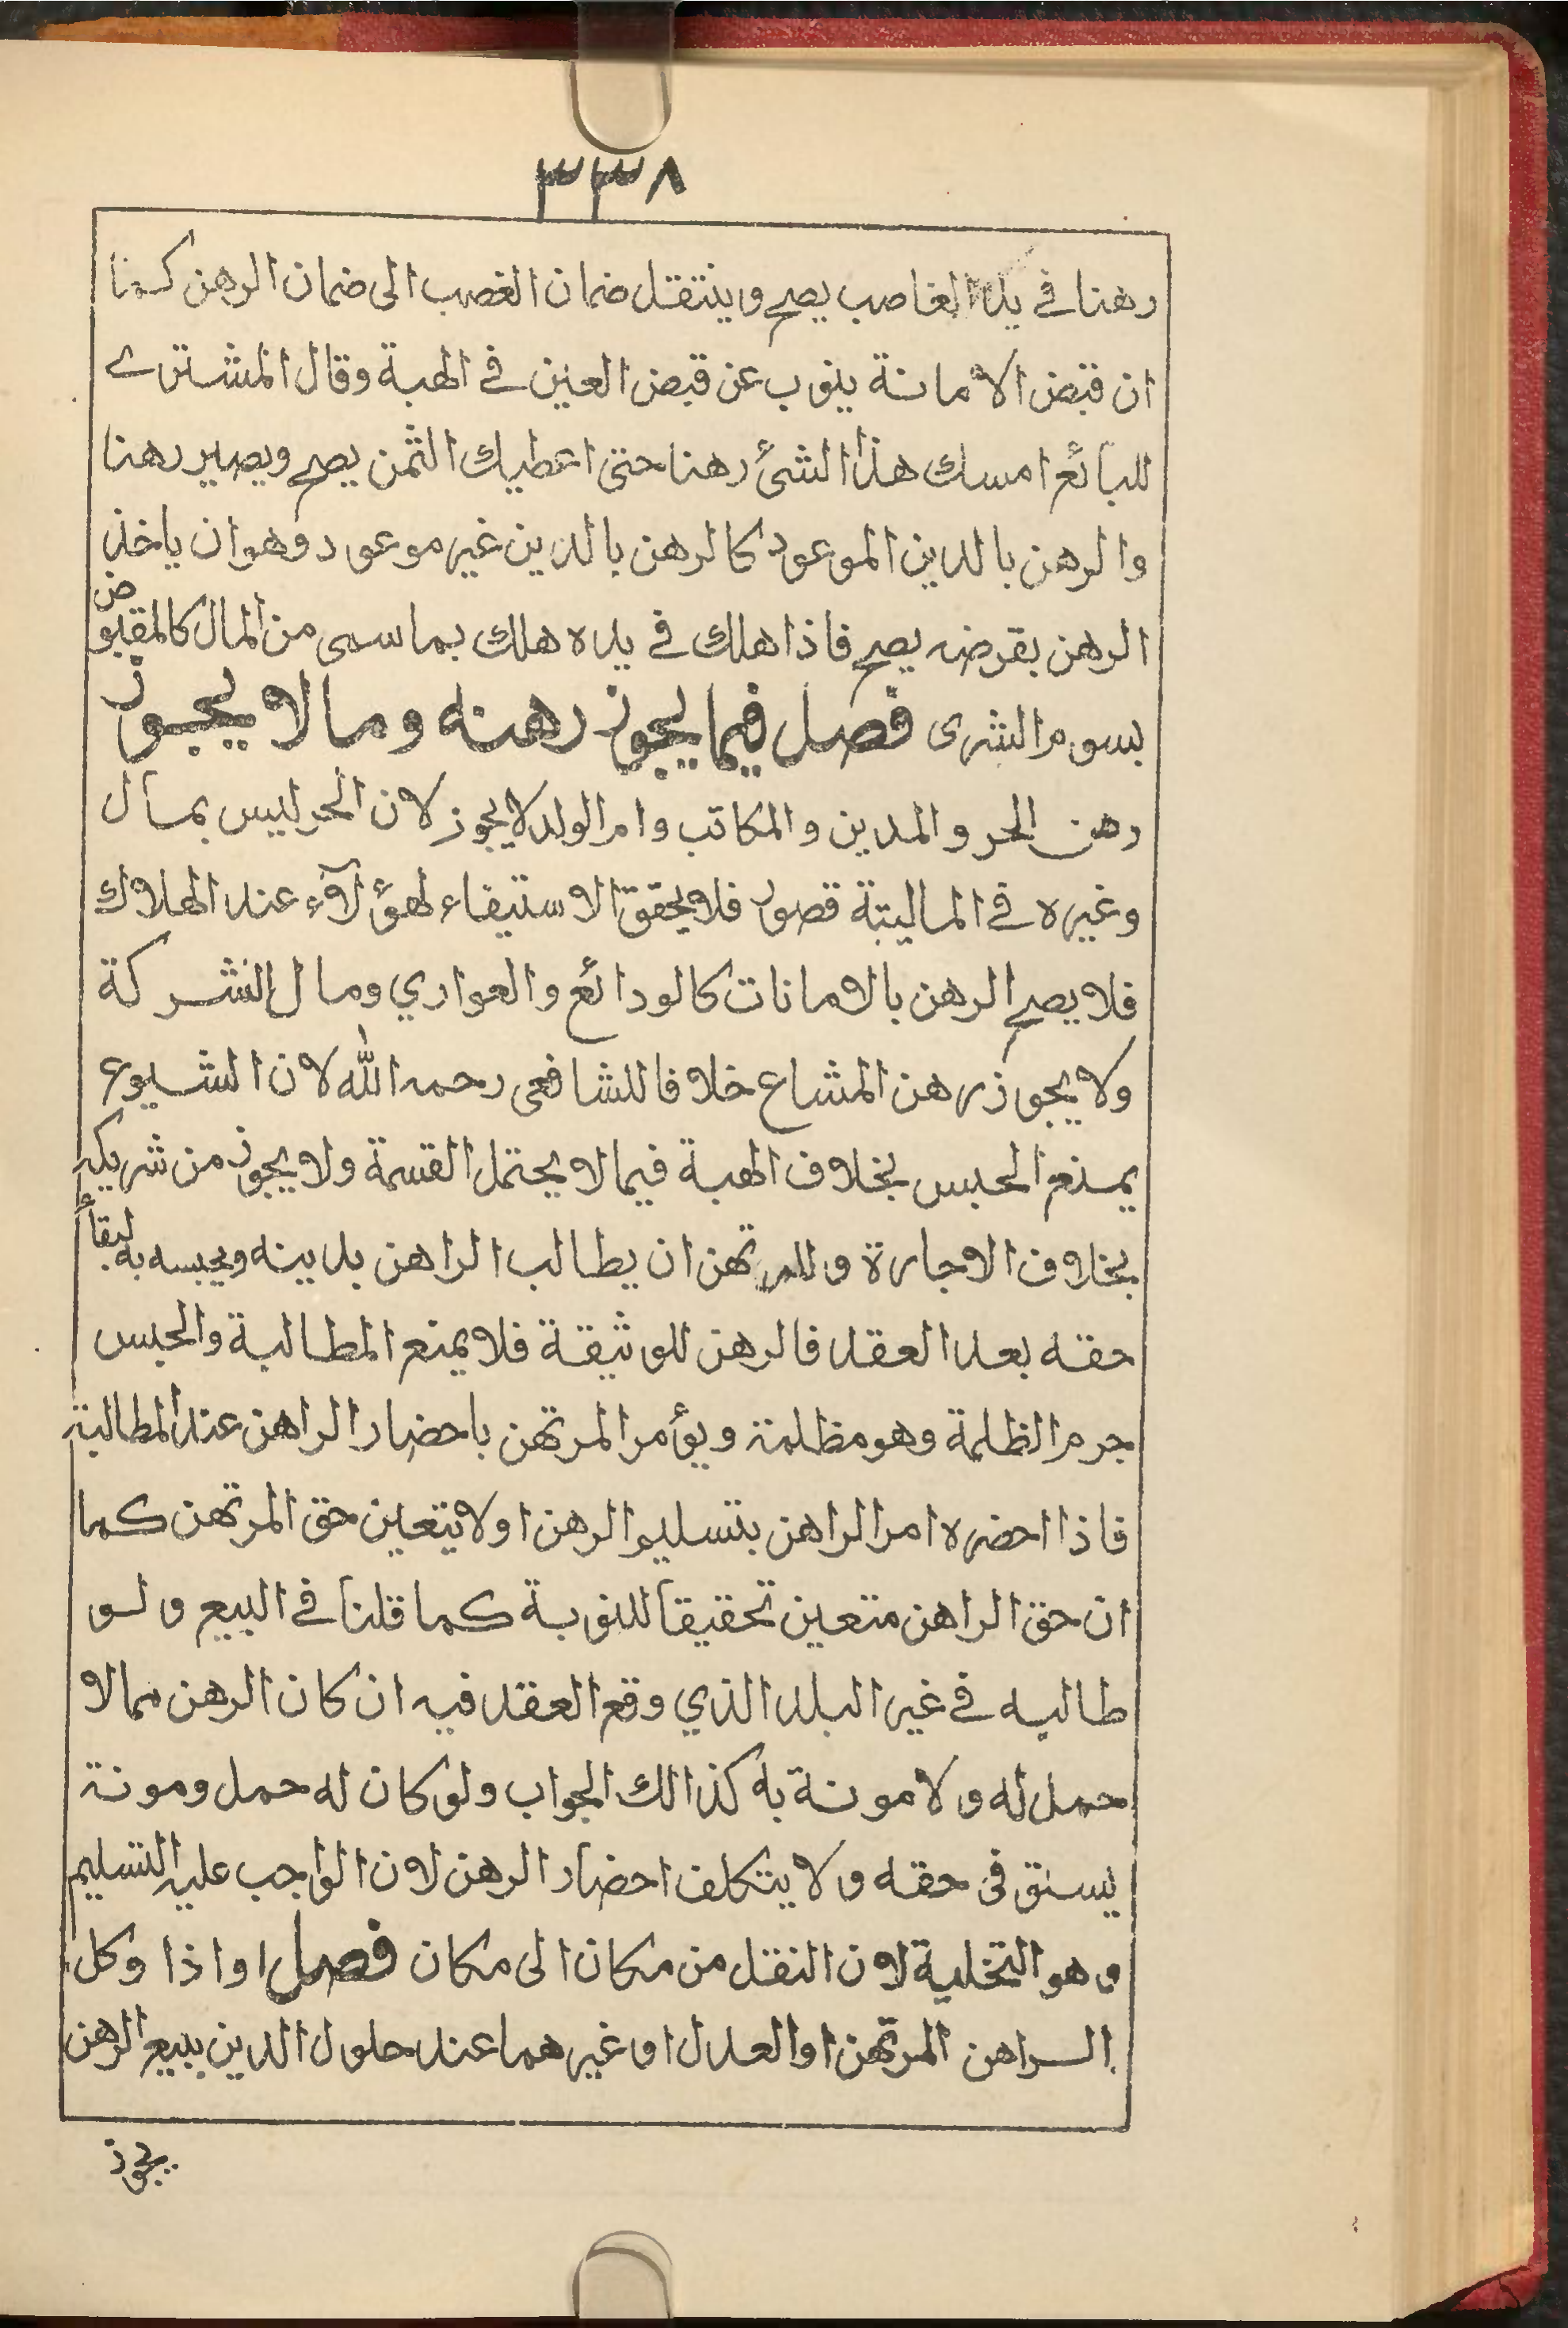 ٣٣٨
رهنا في يد الغاصب يصح وينتقل ضمان الغصب الى ضمان الرهن كما
ان قبض الامانة ينوب عن قبض العين في الهبة وقال المشترے
للبائع امسك هذا الشئ رهنا حتى اعطيك الثمن يصح ويصير رهنا
والرهن بالدين الموعود كالرهن بالدين غير موعود وهو ان ياخذ
الرهن بقرضه يصح فاذا هلك في يده هلك بما سمى من المال كالمقبوض
بسوم الشرى فصل فيما يجوز رهنه وما لا يجوز
رهن الحر والمدين والمكاتب وام الولد لا يجوز لان الحر ليس بمال
وغيره في المالية قصور فلا يحقق الاستيفاء لهؤلآء عند الهلاك
فلا يصح الرهن بالامانات كالودائع والعواري ومال الشركة
ولا يجوز رهن المشاع خلافا للشافعى رحمه الله لان الشيوع
يمنع الحبس بخلاف الهبة فيما لا يحتمل القسمة ولا يجوز من شريكه
بخلاف الاجارة وللمرتهن ان يطالب الراهن بدينه ويحبسه به لبقاء
حقه بعد العقد فالرهن للوثيقة فلا يمنع المطالبة والحبس
جرم الظلمة وهو مظلمة ويؤمر المرتهن باحضار الراهن عند المطالبة
فاذا احضره امر الراهن بتسليم الرهن اولا يتعين حق المرتهن كما
ان حق الراهن متعين تحقيقا للنوبة كما قلنا في البيع ولو
طالبه في غير البلد الذي وقع العقد فيه ان كان الرهن مما لا
حمل له ولا مونة به كذالك الجواب ولو كان له حمل ومونة
يستوفى حقه ولا يتكلف احضار الرهن لان الواجب عليه التسليم
وهو التخلية لان النقل من مكان الى مكان فصل اواذا وكل
الراهن المرتهن او العدل او غيرهما عند حلول الدين ببيع الرهن
يجوز